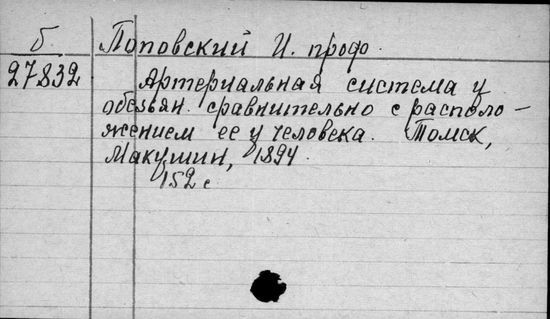 б Поповский И. проф.
27832 Артериальная система у
обезьян сравнительно с располо-
жением ее у человека. Томск,
Макушин, 1894.
152 с